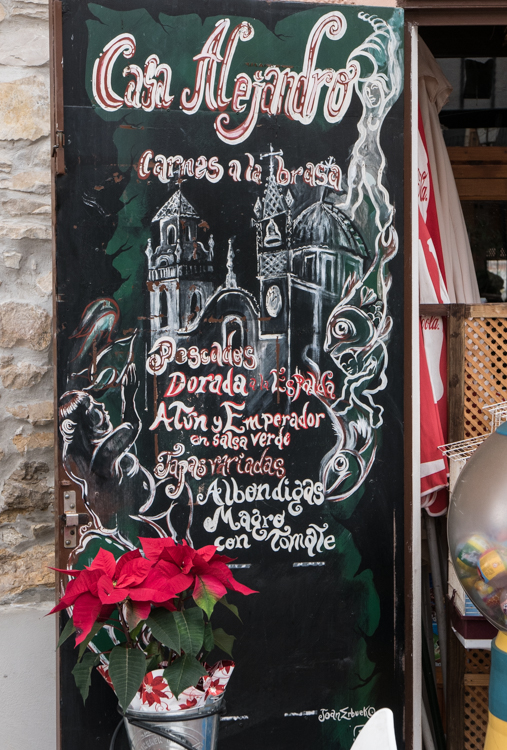 Casa Alejandro
Carnes a la brasa
Pescades
Dorada a la Espalda
Atun y Emperador
en salsa verde
Tapas variadas
Albondigas
Magro
con tomate